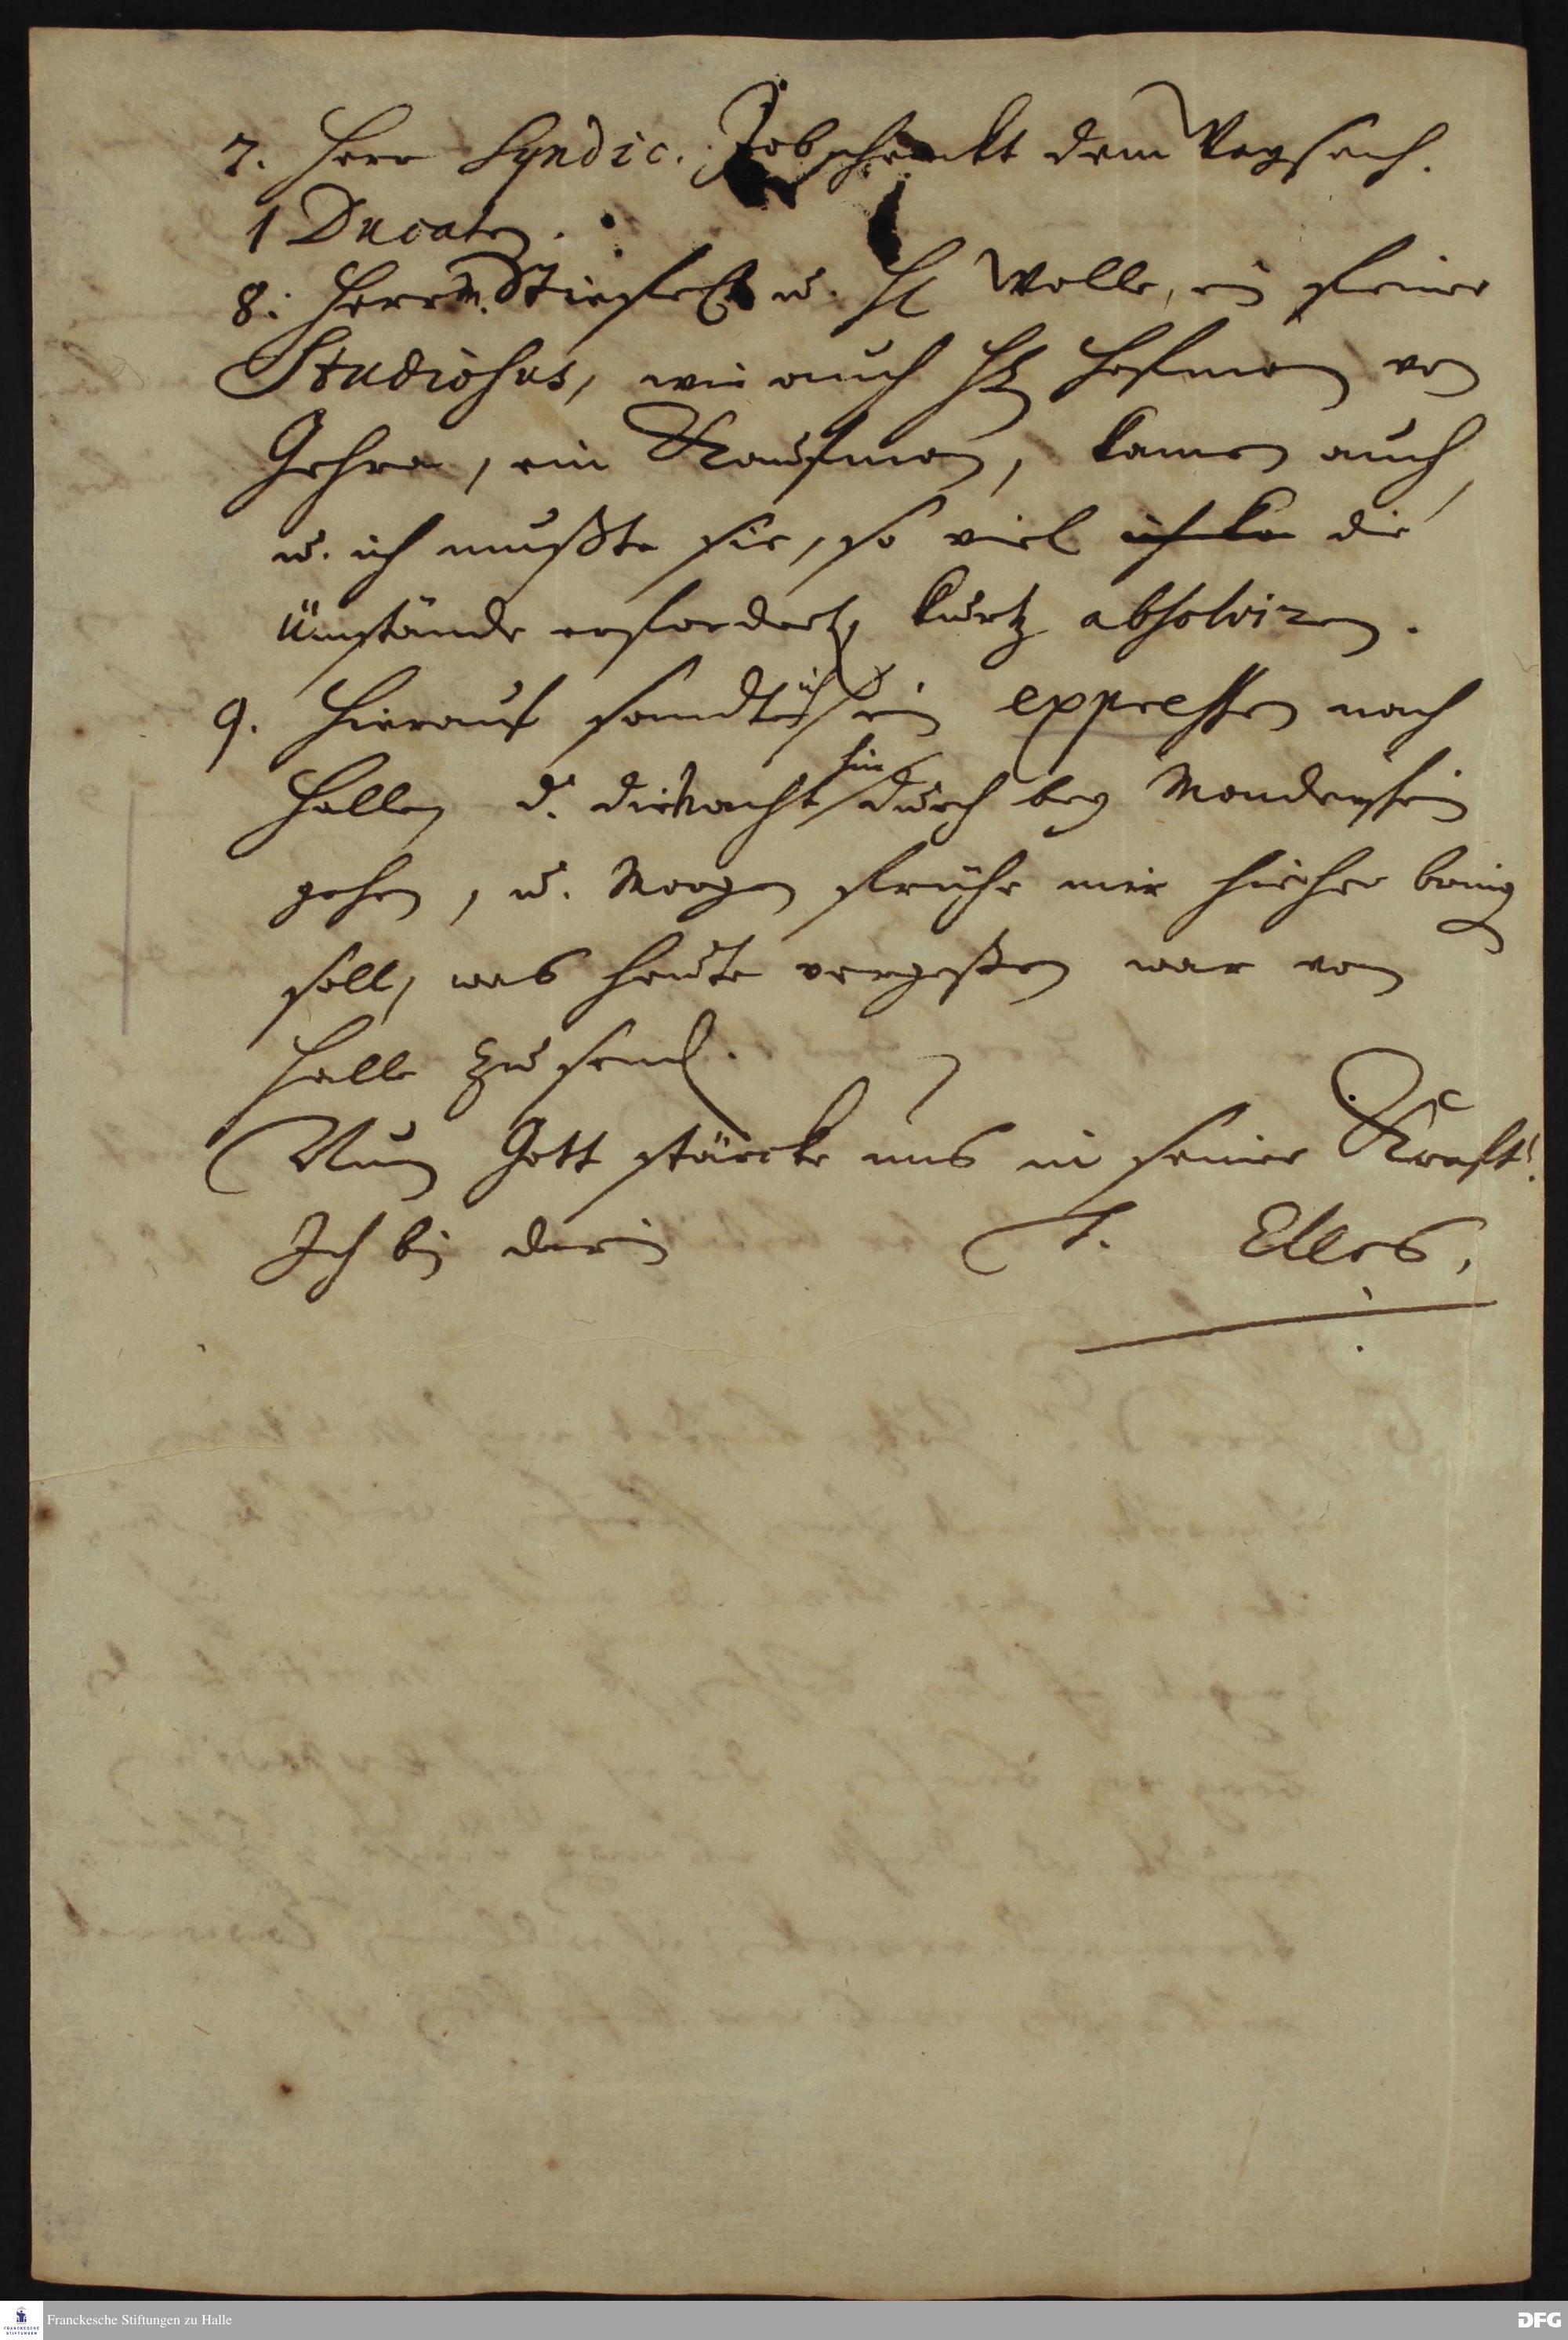 7. Herr Syndic. Job schenckt dem Waysenh.
1 Ducaten.
8. Herr M. Stiefel u. H Wolle, ein feiner
Studiosus, wie auch H Hofman von
Gehra, ein Kaufman, kamen auch,
u. ich mußte sie, so viel ich ka die
Umstände erfordert, kurtz absolviren.
9. Hierauf sandte ich ein expressen nach
Hallen d. die Nacht hindurch bey Mondenschein
gehen, u. Morgen frühe mir hieher bring
soll, was heute vergeßen war von
Halle zu send.
Nun Gott stärcke uns in seiner Krafft!
Ich bin darin
T. Elles.
Franckesche Stiftungen zu Halle
DFG